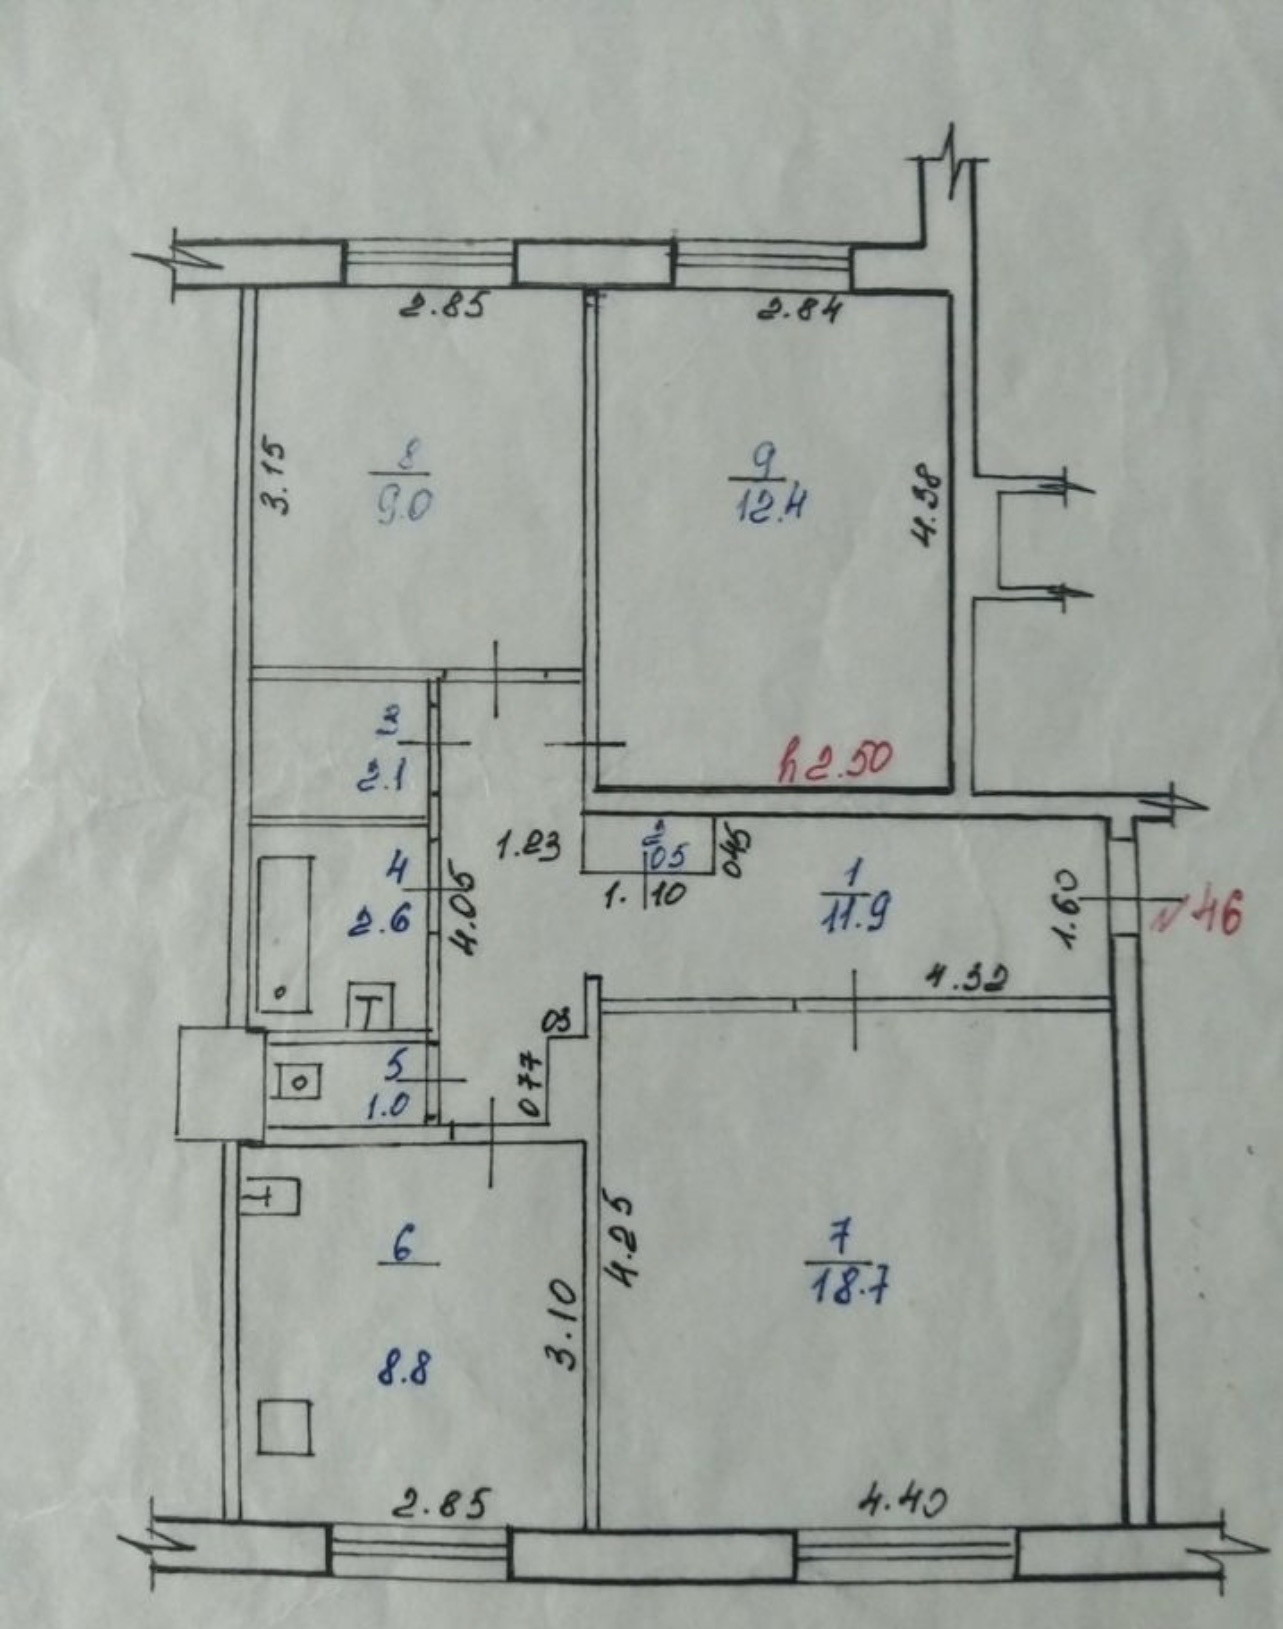 2.85
2.84
3.15
8
9.0
9
12.4
4.38
h 2.50
2.1
1.23
05
045
1.10
4
2.6
4.05
1
11.9
1.60
№ 46
4.32
03
077
5
1.0
6
8.8
3.10
4.25
7
18.7
2.85
4.40